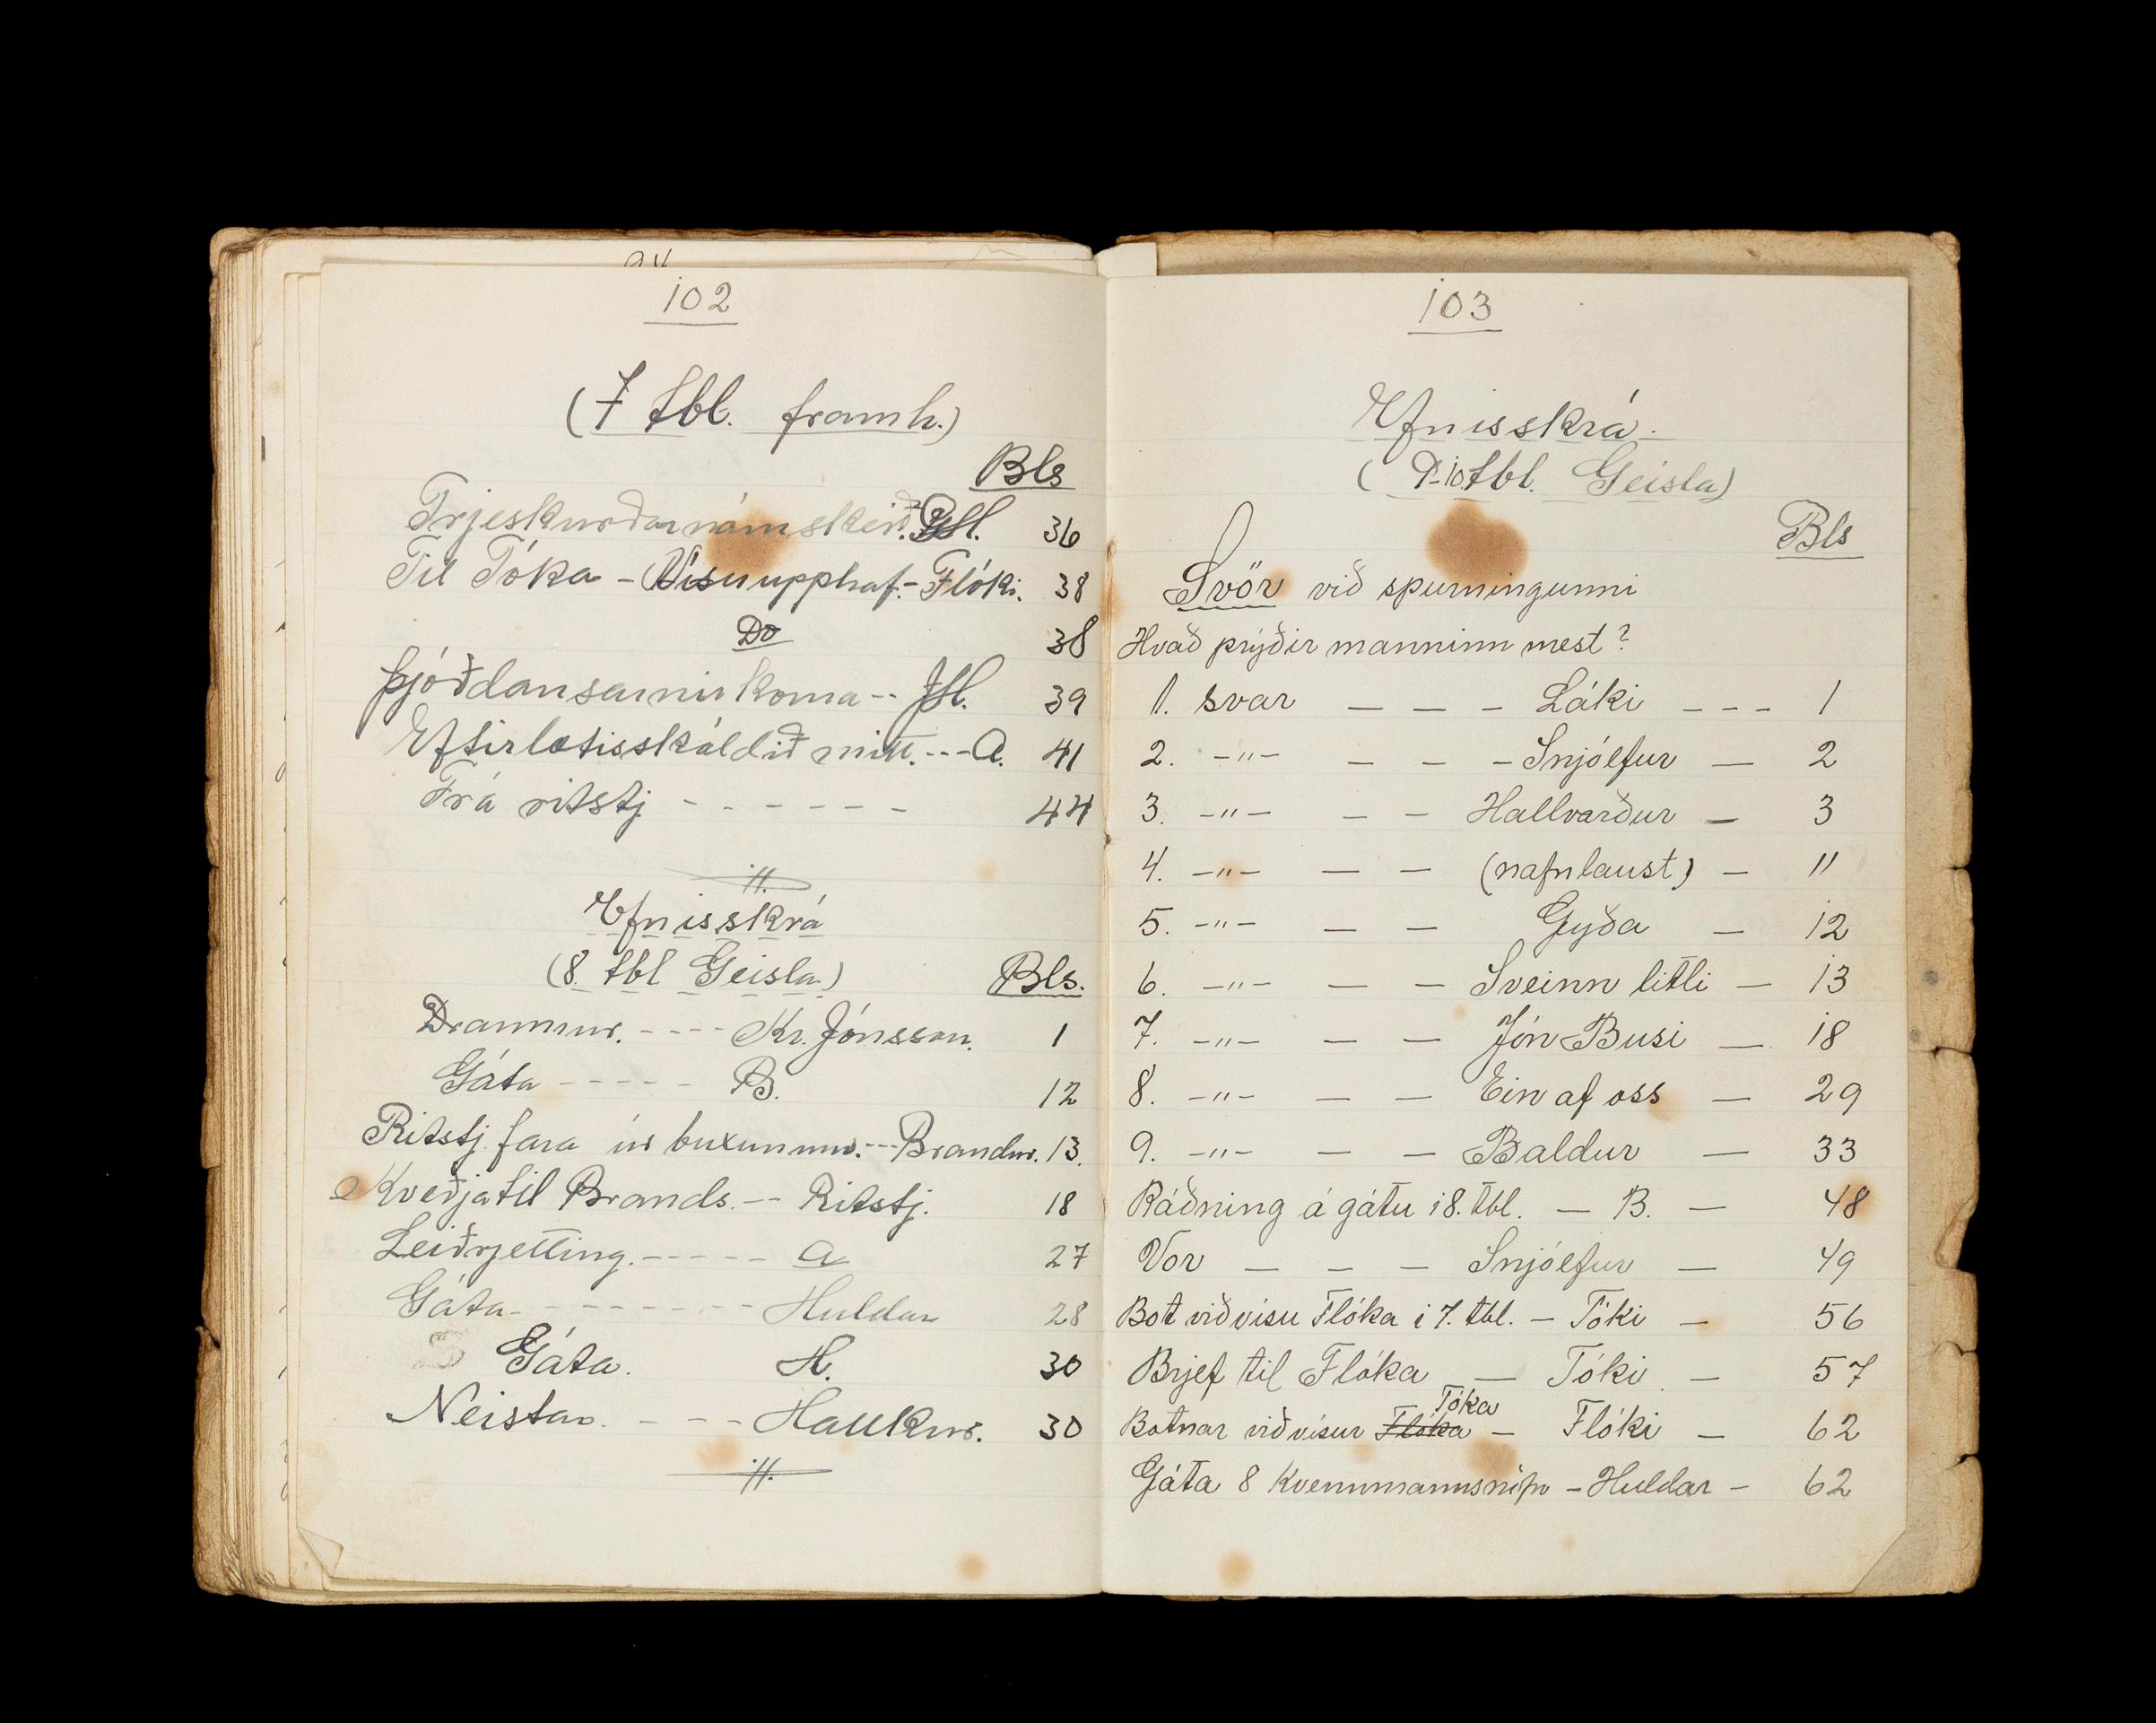 102
(7 tbl. framh.)
Bls
Trjeskurðarnámskeið. JH. 36
Til Tóka - (Vísuupphaf.- Flóki. 38
Do 38
Þjóðdansarnir koma -- JH. 39
Eftirlætisskáldið mitt. --- A. 41
Frá ritstj. - - - - - - 44
Efnisskrá
(8. tbl Geisla)
Bls.
Draumur. - - - - Kr. Jónsson. 1
Gáta - - - - - B. 12
Ritstj. fara úr buxunum. --- Brandur. 13.
Kveðja til Brands. -- Ritstj. 18
Leiðrjetting. - - - - - A 27
Gáta - - - - - - - - Huldar 28
Gáta. H. 30
Neistar. - - - Haukur. 30
103
Efnisskrá.
(9-10. tbl. Geisla)
Bls
Svör við spurningunni
Hvað prýðir manninn mest?
1. svar — — — Láki - - - 1
2. -"- — — — Snjólfur — 2
3. -"- — — Hallvarður — 3
4. -"- — — (nafnlaust) — 11
5. -"- — — Gyða — 12
6. -"- — — Sveinn litli — 13
7. -"- — — Jón Busi — 18
8. -"- — — Ein af oss — 29
9. -"- — — Baldur — 33
Ráðning á gátu í 8. tbl. — B. — 48
Vor — — — Snjólfur — 49
Bot við vísu Flóka í 7. tbl. — Tóki — 56
Brjef til Flóka — Tóki — 57
Tóka
Botnar við vísur Flóka — Flóki — 62
Gáta 8 Kvennmannsnöfn - Huldar - 62